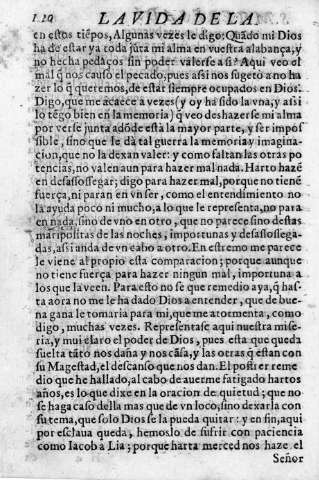 120 LA VIDA DE LA
en estos tiẽpos, Algunas vezes le digo: Quãdo mi Dios
ha de estar ya toda jũta mi alma en vuestra alabança, y
no hecha pedaços sin poder valerse a si? Aqui veo el
mal q̃ nos causo el pecado, pues assi nos sugeto a no ha
zer lo q̃ queremos, de estar siempre ocupados en Dios.
Digo, que me acaece a vezes (y oy ha sido la vna, y assi
lo tẽgo bien en la memoria) q̃ veo deshazerse mi alma
por verse junta adõde està la mayor parte, y ser impos
sible, sino que le dà tal guerra la memoria y imagina-
cion, que no la dexan valer: y como faltan las otras po
tencias, no valen aun para hazer mal nada. Harto hazẽ
en desassossegar; digo para hazer mal, porque no tienẽ
fuerça, ni paran en vn ser, como el entendimiento no
la ayuda poco ni mucho, a lo que le representa, no para
en nada, sino de vno en otro, que no parece sino destas
maripositas de las noches, importunas y desassossega-
das, assi anda de vn cabo a otro. En estremo me parece
le viene al propio esta comparacion; porque aunque
no tiene fuerça para hazer ningun mal, importuna a
los que la veen. Para esto no se que remedio aya, q̃ has-
ta aora no me le ha dado Dios a entender, que de bue-
na gana le tomaria para mi, que me atormenta, como
digo, muchas vezes. Representase aqui nuestra mise-
ria, y mui claro el poder de Dios, pues esta que queda
suelta tãto nos daña y nos cãsa, y las otras q̃ estan con
su Magestad, el descanso que nos dan. El postrer reme
dio que he hallado, al cabo de auerme fatigado hartos
años, es lo que dixe en la oracion de quietud; que no
se haga caso della mas que de vn loco, sino dexarla con
su tema, que solo Dios se la pueda quitar: y en fin, aqui
por esclaua queda, hemoslo de sufrir con paciencia
como Iacob a Lia; porque harta merced nos haze el
Señor